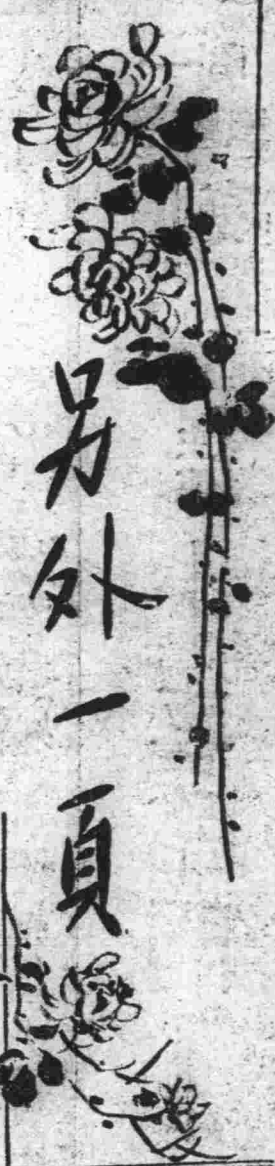 另外一頁